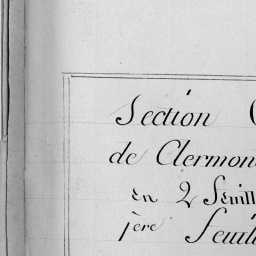 Section
de Clermon
en 2 Feuill
1ère Feuil